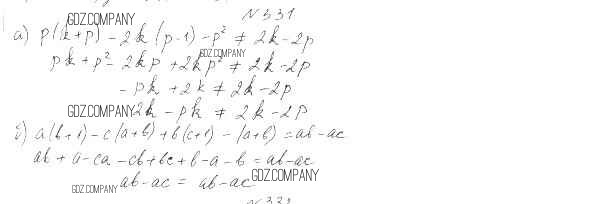 GDZ.COMPANY
N 331
а) p(k+p) - 2k(p-1) - p² ≠ 2k - 2p
GDZ.COMPANY
pk + p² - 2kp + 2k p² ≠ 2k - 2p
- pk + 2k ≠ 2k - 2p
GDZ.COMPANY 2k - pk ≠ 2k - 2p
б) a(b+1) - c(a+b) + b(c+1) - (a+b) = ab - ac
ab + a - ca - cb + bc + b - a - b = ab - ac
GDZ.COMPANY ab - ac = ab - ac GDZ.COMPANY